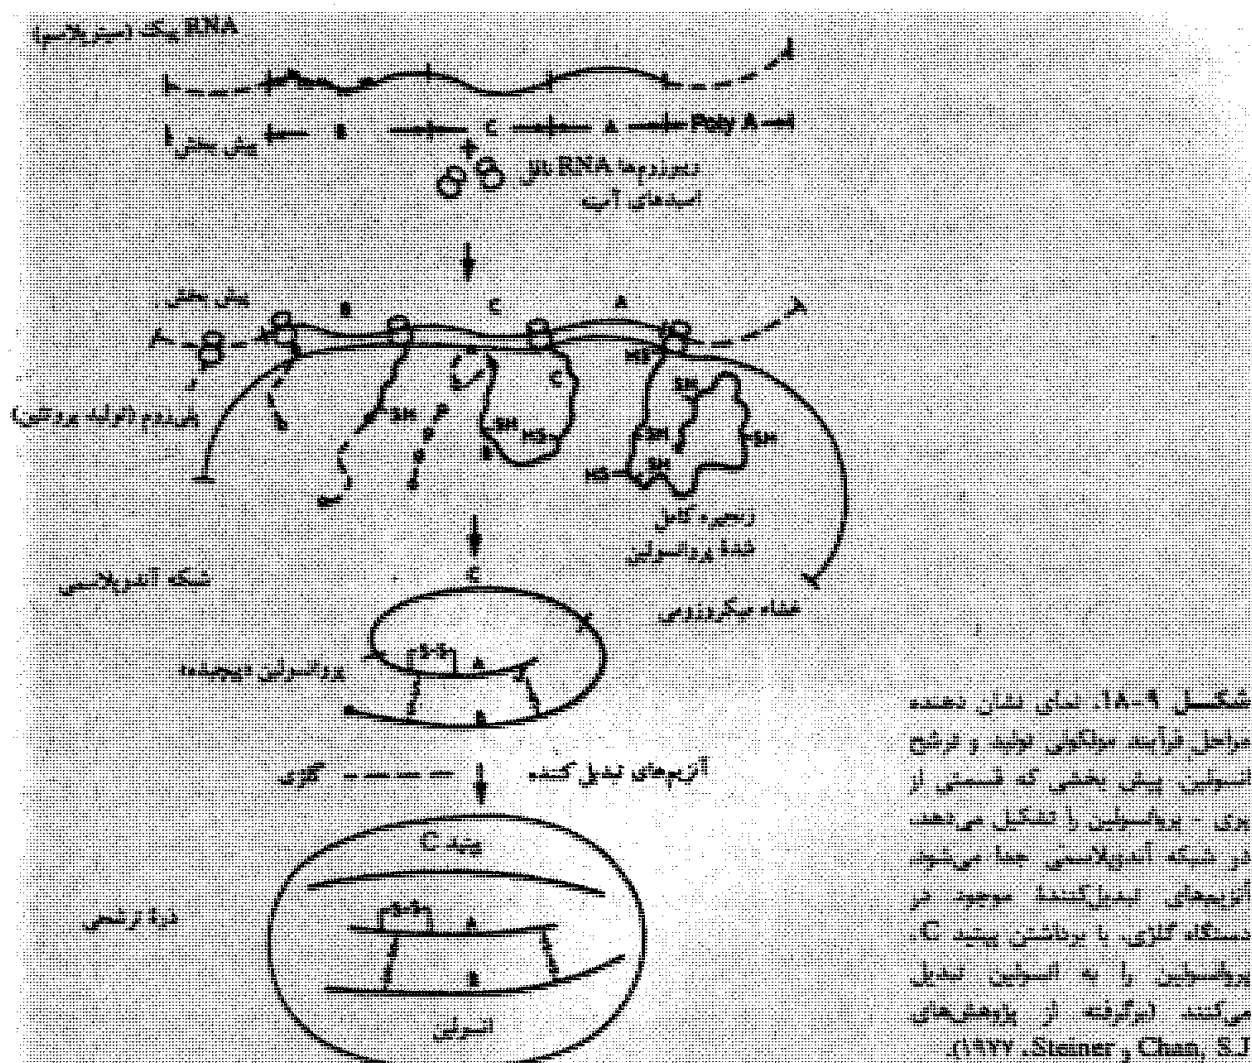 RNA پیک (سیتوپلاسم)
پیش بخش B C A Poly A
+
ریبوزوم‌ها RNA ناقل
اسیدهای آمینه
پیش بخش B C A
HS
SH
C
ریبوزوم (تولید پروتئین)
SH SH HS SH SH
B
HS SH
زنجیره کامل
شدهٔ پروانسولین
شبکه آندوپلاسمی
غشاء میکروزومی
C
S-S A
پروانسولین (پیچیده)
B
گلژی آنزیم‌های تبدیل کننده
پپتید C
S-S A
ذرهٔ ترشحی
B
انسولین
شکل ۹-۱۸. نمای نشان دهنده
مراحل فرآیند مولکولی تولید و ترشح
انسولین. پیش بخشی که قسمتی از
پری - پروانسولین را تشکیل می‌دهد،
در شبکه آندوپلاسمی جدا می‌شود.
آنزیمهای تبدیل‌کنندهٔ موجود در
دستگاه گلژی، با برداشتن پپتید C،
پروانسولین را به انسولین تبدیل
می‌کنند (برگرفته از پژوهش‌های
Steiner و Chan, S.J، ۱۹۷۷).